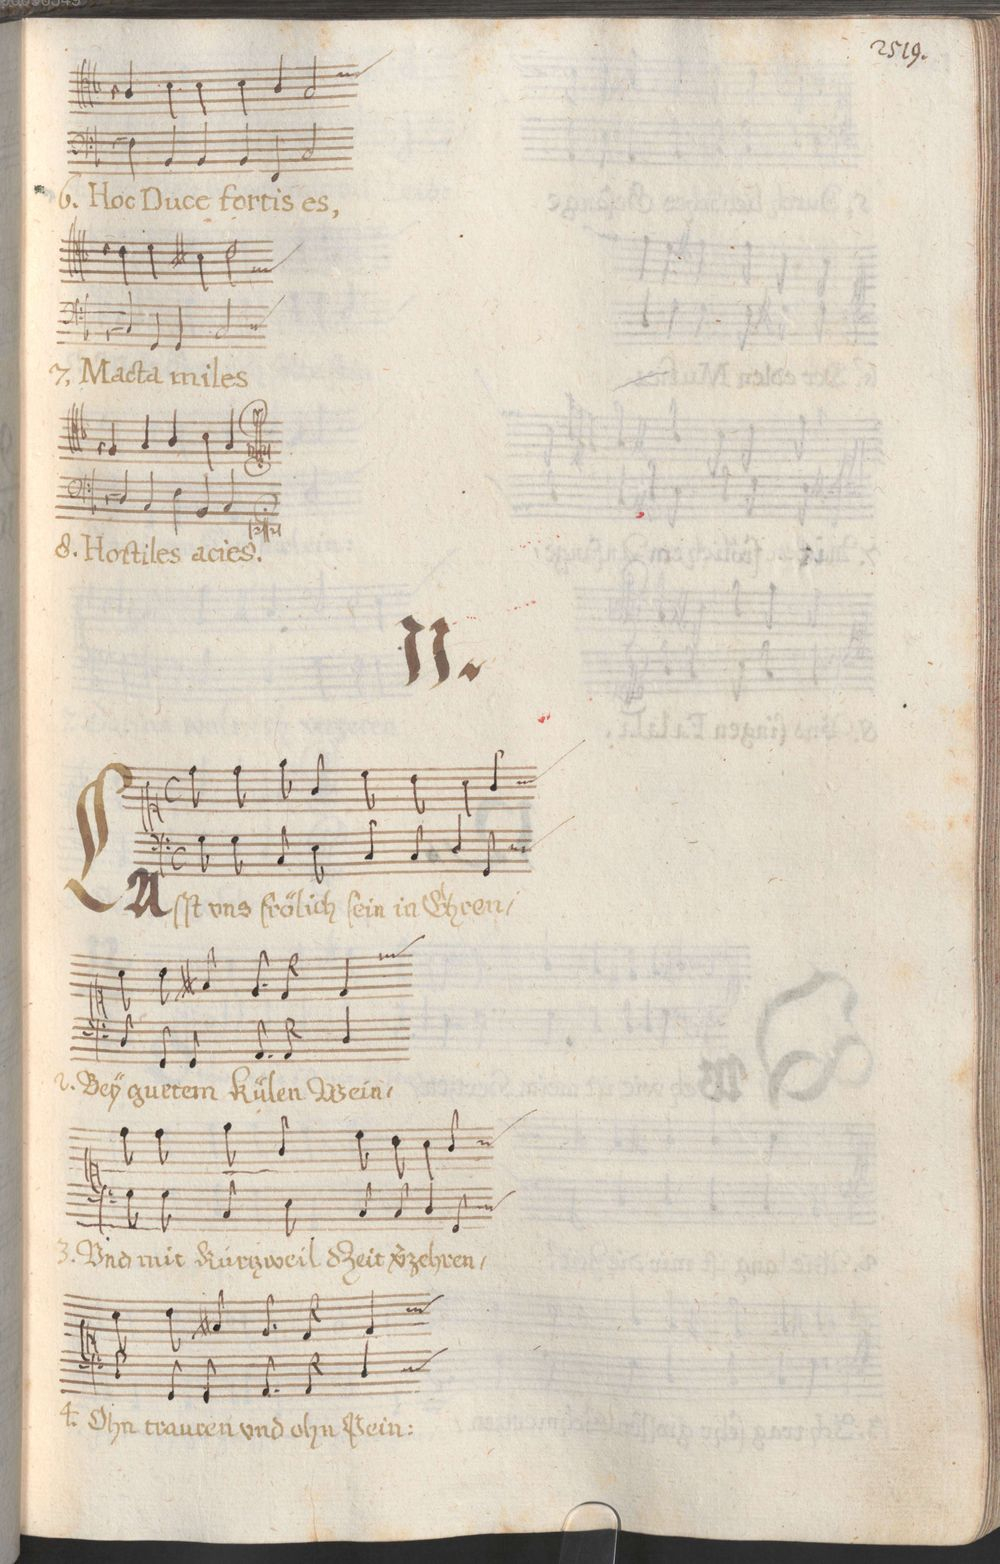 2519.
6. Hoc Duce fortis es,
7. Macta miles
8. Hostiles acies.
II.
LAsst vns frölich sein in Ehren/
2. Beÿ guetem külen Wein/
3. Vnd mit kurzweil dZeit v̈zehren/
4. Ohn trauren vnd ohn Pein: